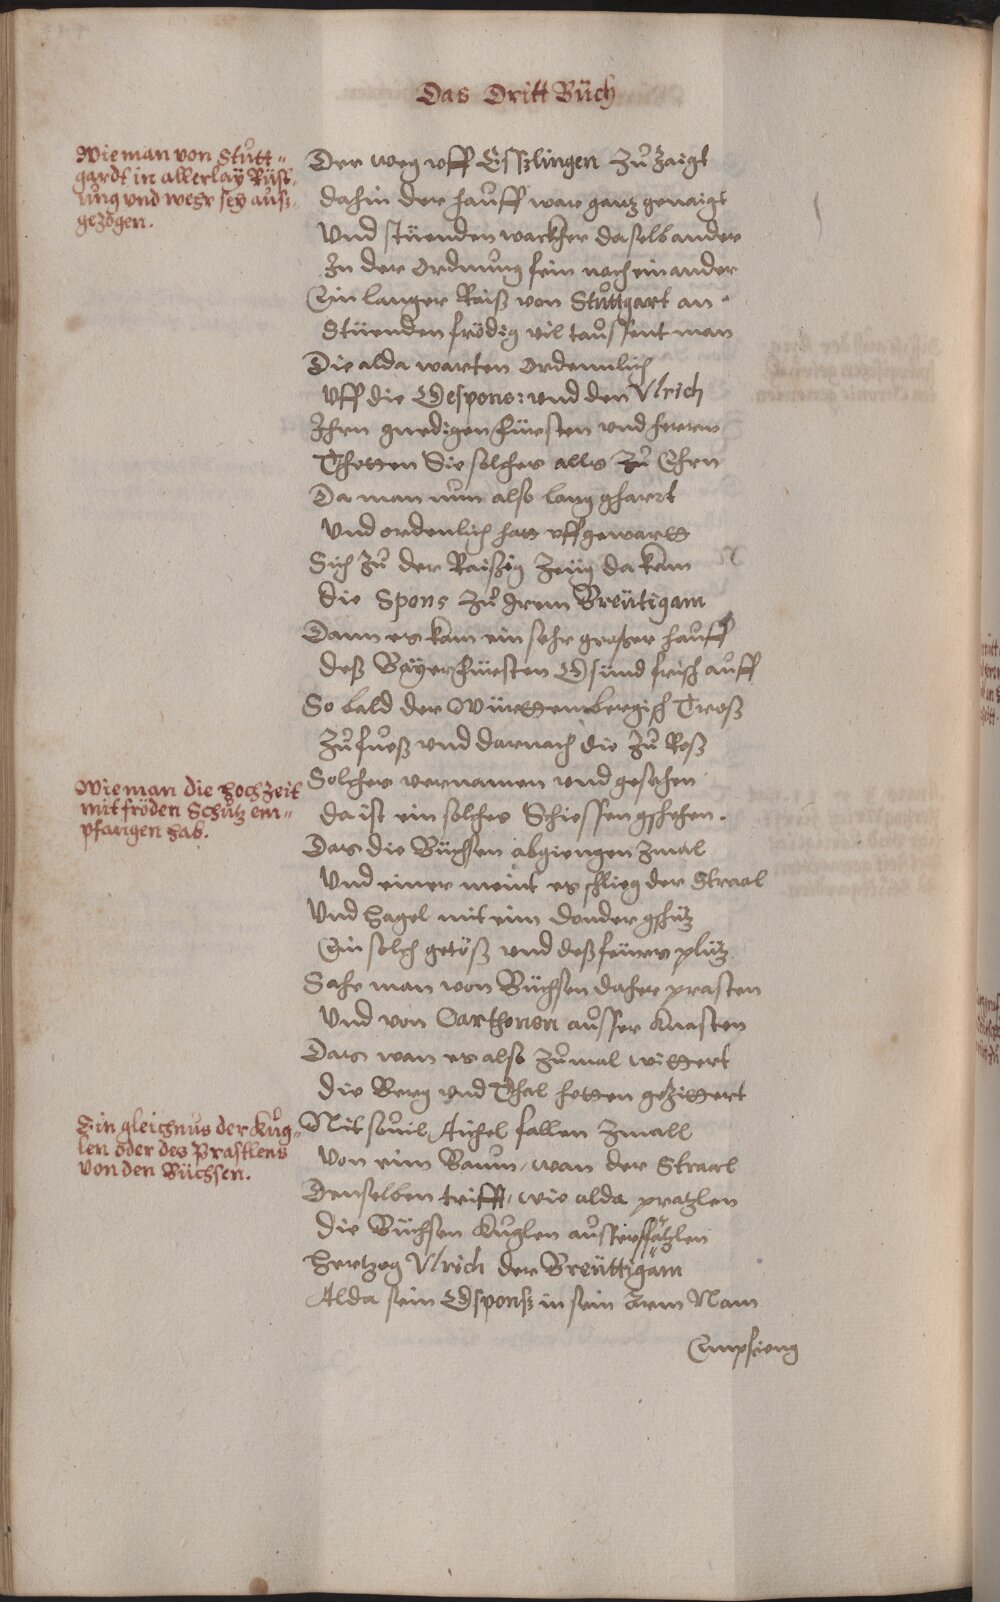 Das Dritt Büch
Wie man von Stutt-
gardt in allerlay Rüst-
ung vnd wehr sey ausz-
gezogen.
Der weg vff Esszlingen zů zaigt
dahin der hauff war gantz genaigt
Vnd stüenden wackher daselbander
In der Ordnung fein nach einander
Ein langer Raiß von Stuttgart an
Stüenden frödig vil taussent man
Die alda warten Ordennlich
Vff die Gespons: vnd den Vlrich
Ihrn gnedigen fürsten vnd herrn
Thetten Sie solches alls zů Ehrn
Da man nun also lang gharrt
Vnd ordenlich hatt vffgewartt
Sich zů der Raißig Zeüg da kam
die Spons zů Irem Breütigam
Dann es kam ein sehr grosser hauff
deß Bayerfürsten Gsünd frisch auff
So bald der Württembergisch Troß
Zů fueß vnd darnach die zů Roß
Wie man die hochzeit
mit fröden Schutz em-
pfangen hab.
Solches vernamen vnd gesehen
da ist ein solches Schiessen gschehen.
Das die Büchsen abgiengen zmal
Vnd einer meint es schlieg der Straal
Vnd Hagel mit eim donder gschütz
Ein solch getöß vnd deß feüers plütz
Sahe man von Büchsen daher prasten
Vnd von Carthonen ausser Knasten
Das wan es also zumal wittert
die Berg vnd Thal hetten gezittert
Ein gleichnus der Kug-
len oder des Prastlens
von den Büchsen.
Nit souil Aichel fallen zmall
Von eim Baum, wan der Straal
Denselben trifft, wie alda pratzlen
die Büchsen Kuglen
Hertzog Vlrich der Breüttigam
Alda sein Gsponß in sein Nam
Empfieng